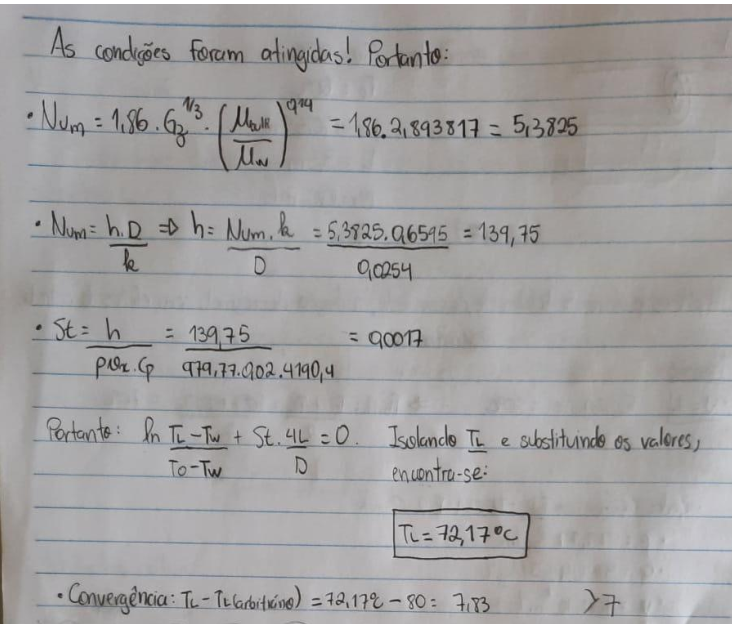 As condições foram atingidas! Portanto:
• Num = 1,86 . Gz^1/3 . (μbulk/μw)^0,14 = 1,86 . 2,893817 = 5,3825
• Num = h.D/k ⇒ h = Num.k/D = 5,3825.0,6595/0,0254 = 139,75
• St = h/ρvz.Cp = 139,75/979,77.0,02.4190,4 = 0,0017
Portanto: ln TL-Tw/To-Tw + St. 4L/D = 0. Isolando TL e substituindo os valores,
encontra-se:
TL = 72,17°C
• Convergência: TL - TL(arbitrário) = 72,17°C - 80 = 7,83 >7